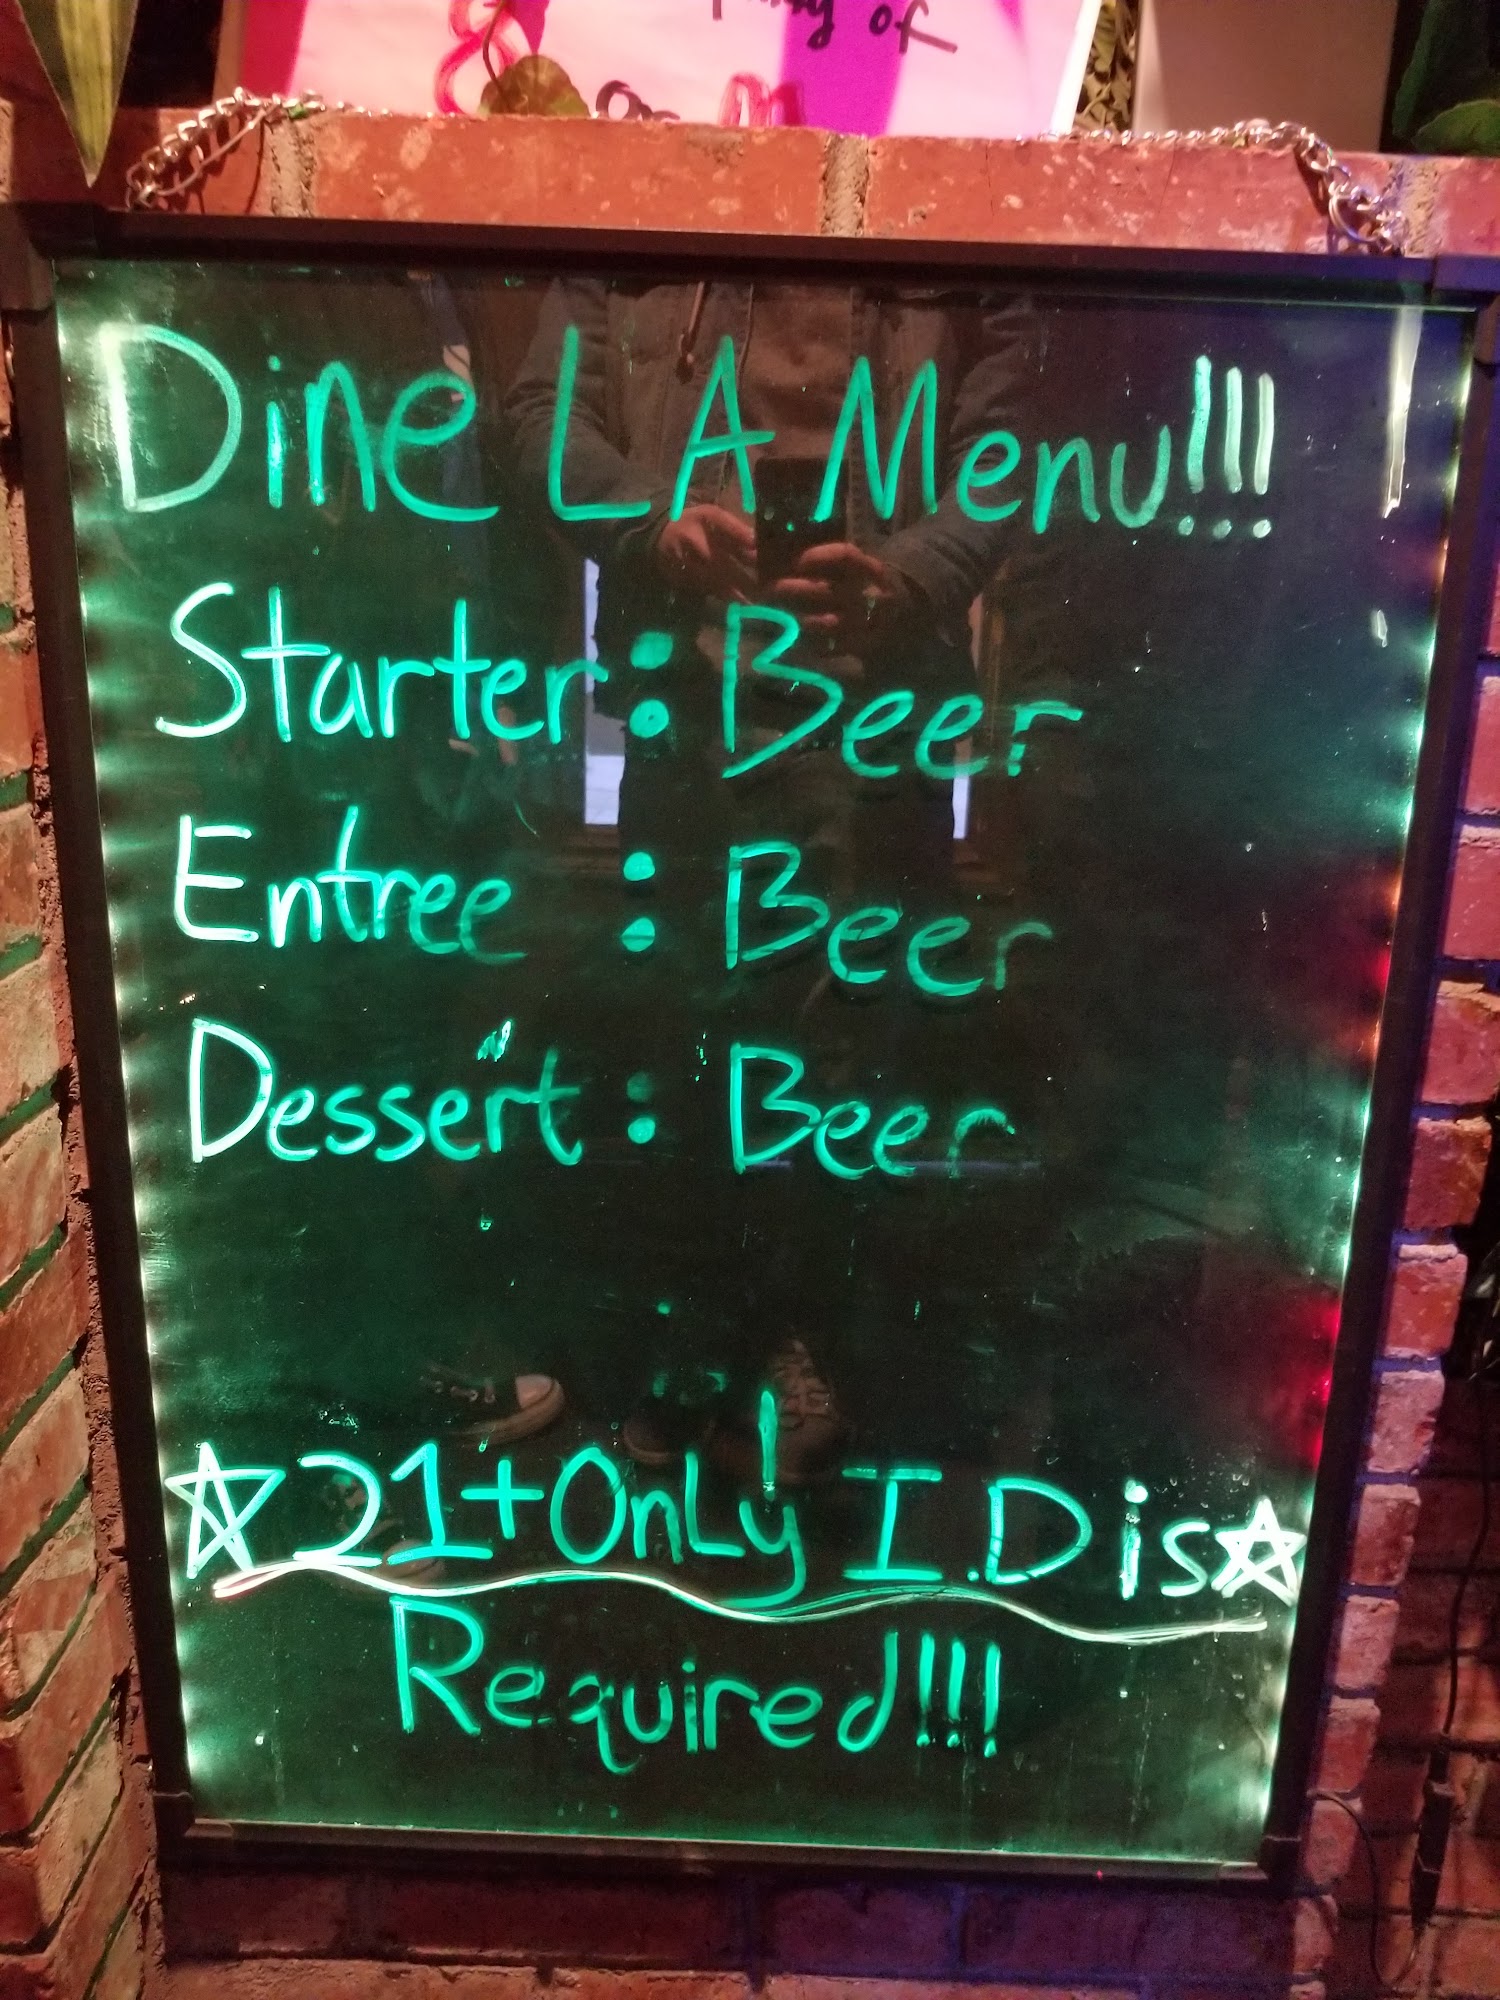 of
Dine LA Menu!!!
Starter: Beer
Entree : Beer
Dessert: Beer
☆21+OnLy I.D is☆
Required!!!